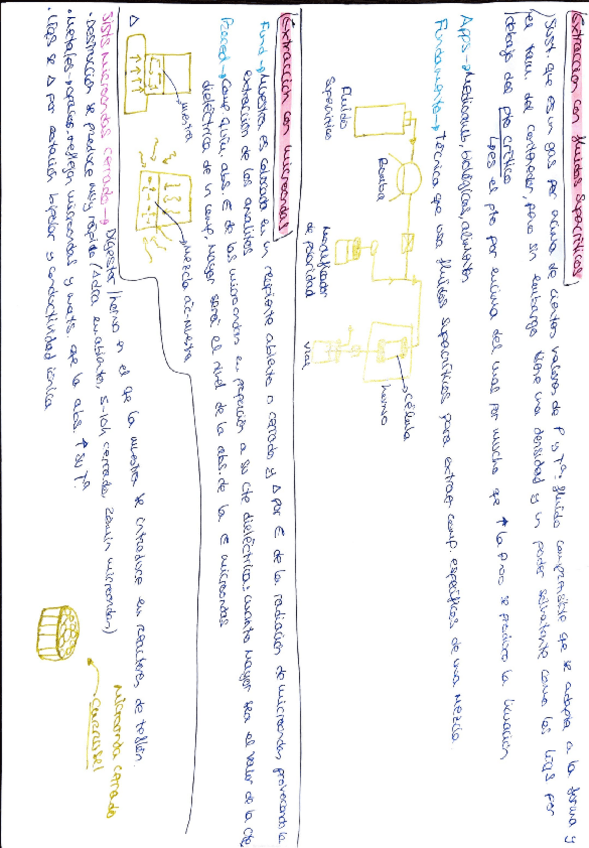 Extracción con fluidos supercríticos
Sust. que es un gas por encima de ciertos valores de P y Tª: fluido compresible que se adapta a la forma y
el tam. del contenedor, pero sin embargo tiene una densidad y un poder solvatante como los líqs por
debajo del pto crítico
↳ es el pto por encima del cual por mucho que ↑ la P no se produce la licuación
Apps → Medioamb, biológicas, alimentos
Fundamento → Técnica que usa fluidos supercríticos para extraer comp. específicos de una mezcla.
Fluidos
supercríticos
Bomba
Modificador
de polaridad
célula
horno
vial
Extracción con microondas
Fund → Muestra es colocada en un recipiente abierto o cerrado y Δ por E de la radiación de microondas, provocando la
extracción de los analitos
Proced → Comp. quím. abs. E de las microondas en proporción a su cte dieléctrica: cuanto mayor sea el valor de la cte
dieléctrica de un comp, mayor será el nivel de la abs. de la E microondas
muestra
Δ
Mezcla ác-muestra
Sists microondas cerrado → Digestor/horno en el que la muestra se introduce en reactores de teflón.
· Destrucción se produce muy rápido (1 día en abierto, 5-10h cerrado, 20min microondas)
· Metales → opacos, reflejan microondas y mats. que la abs. ↑ su Tª.
· Líqs se Δ por rotación bipolar y conductividad iónica
microonda cerrado
Carrusel